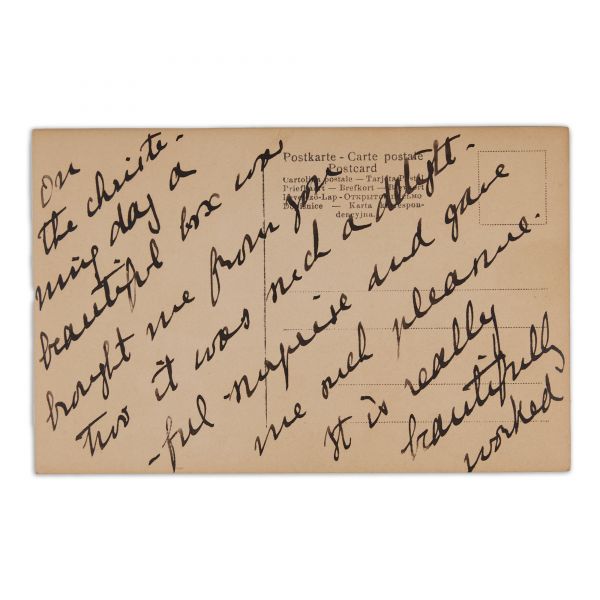 Postkarte - Carte postale
Postcard
Cartolina postale — Tarjeta Postal
Brefkort
Levelező-Lap - Открытое письмо
Karta korespon-
dencyjna.
On
the christe-
ning day a
beautiful box was
brought me from you
two it was such a delight-
-ful surprise and gave
me such pleasure.
It is really
beautifully
worked